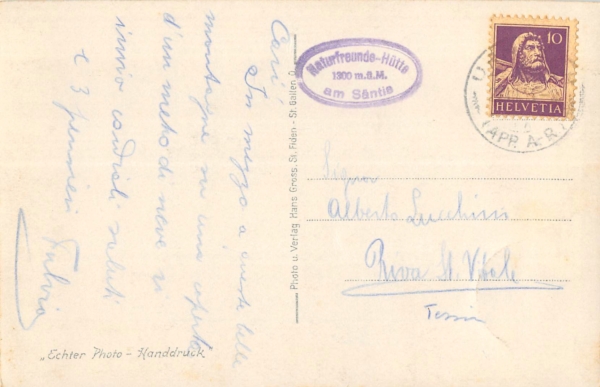 Cari
In mezzo a queste belle
montagne su una coperta
d'un metro di neve vi
invio cordiali saluti
e 3 pensieri Fulvio
"Echter Photo - Handdruck
Photo u. Verlag Hans Gross, St. Fiden - St. Gallen O
Naturfreunde-Hütte
1300 m.ü.M.
am Säntis
10
HELVETIA
U
(APP. A-R
Signor
Alberto Lucchini
Riva St. Vitale
Tessin